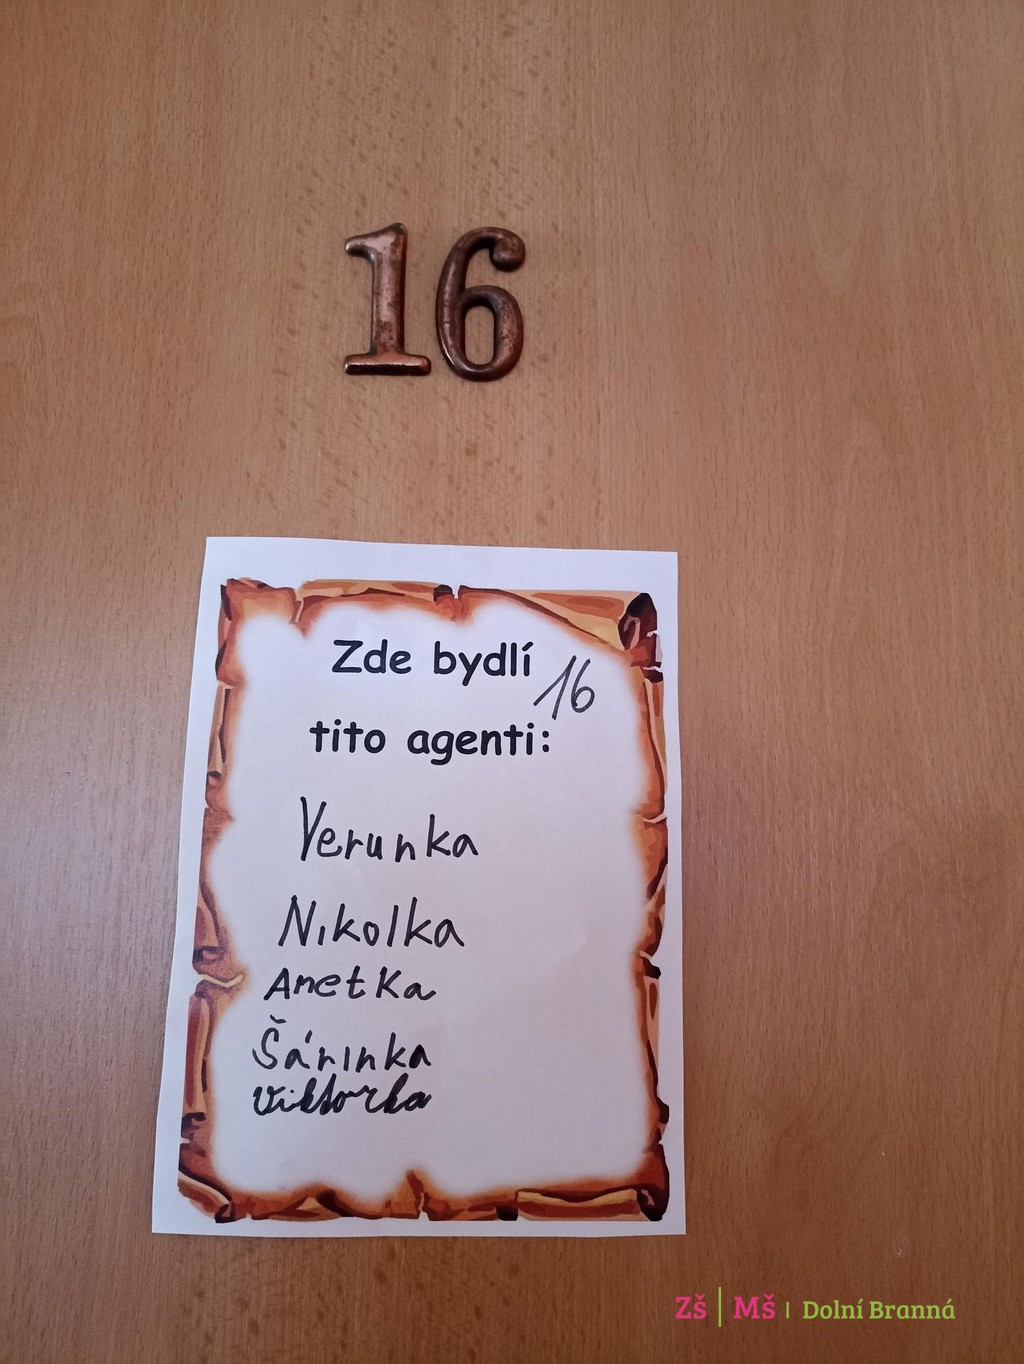 16
Zde bydlí
16
tito agenti:
Verunka
Nikolka
Anetka
Šárinka
Viktorka
Zš | Mš | Dolní Branná